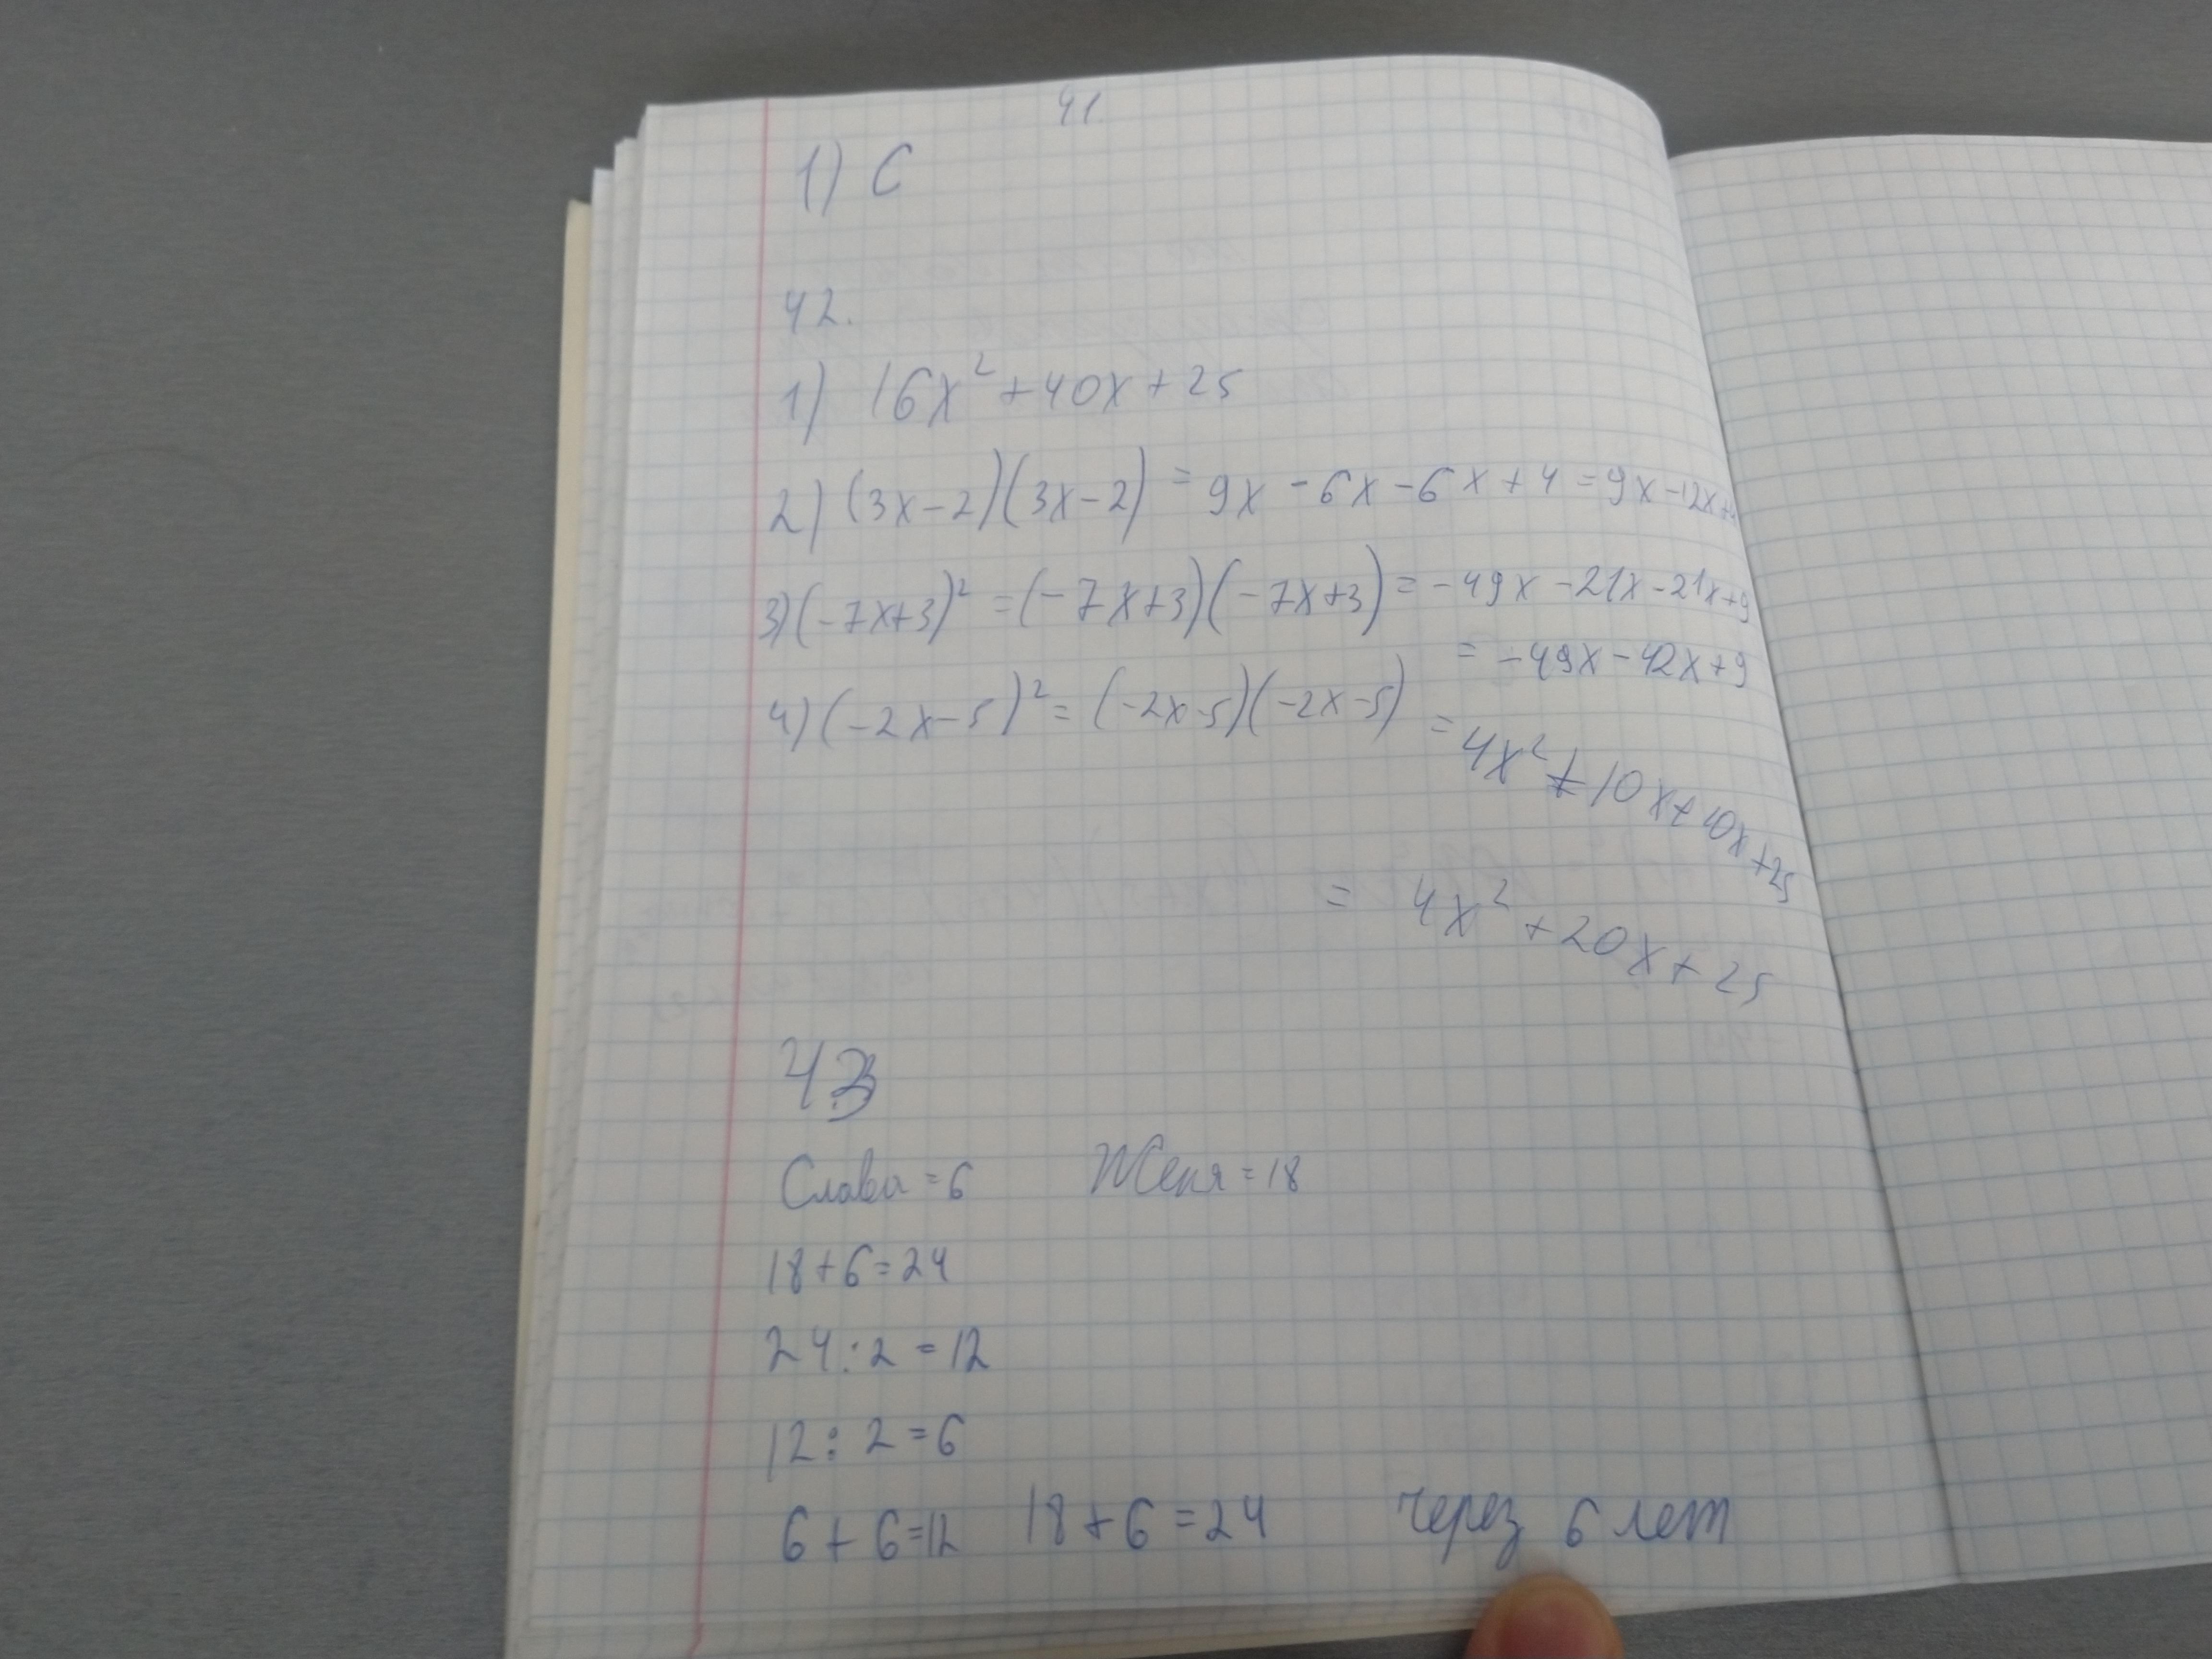 41
1) C
42.
1) 16x² + 40x + 25
2) (3x-2)(3x-2) = 9x - 6x - 6x + 4 = 9x - 12x + 4
3) (-7x+3)² = (-7x+3)(-7x+3) = -49x - 21x - 21x + 9
= -49x - 42x + 9
4) (-2x-5)² = (-2x-5)(-2x-5) = 4x² + 10x + 10x + 25
= 4x² + 20x + 25
43
Слава = 6 Женя = 18
18 + 6 = 24
24 : 2 = 12
12 : 2 = 6
6 + 6 = 12 18 + 6 = 24 через 6 лет